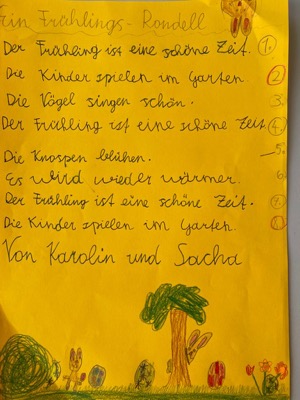 Ein Frühlings-Rondell
Der Frühling ist eine schöne Zeit. 1.
Die Kinder spielen im Garten. 2
Die Vögel singen schön. 3.
Der Frühling ist eine schöne Zeit 4.
Die Knospen blühen. 5.
Es wird wieder wärmer. 6.
Der Frühling ist eine schöne Zeit.
Die Kinder spielen im Garten.
Von Karolin und Sacha